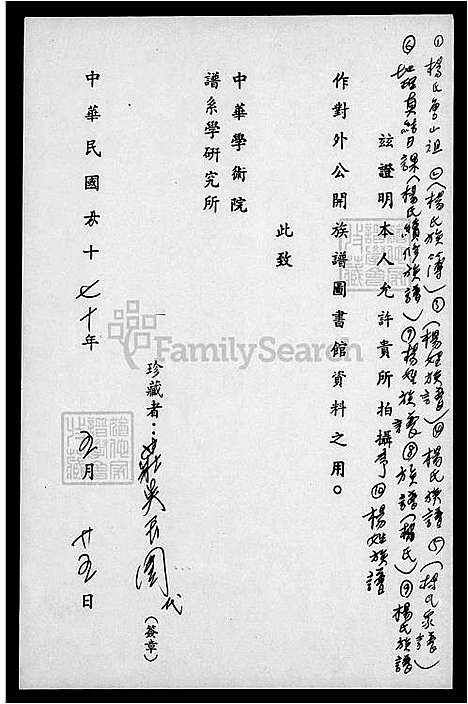 ①楊氏魯山祖②(楊氏族簿)③(楊姓族譜)④楊氏族譜⑤(楊氏家譜)
⑥地理真踪日課(楊氏續修族譜)⑦楊姓族譜⑧族譜(楊氏)⑨楊氏族譜
茲證明本人允許貴所拍攝⑩楊姓族譜
作對外公開族譜圖書館資料之用。
此致
中華學術院
譜系學研究所
珍藏者：
代
(簽章)
中華民國 七十年 五月 廿五日
FamilySearch